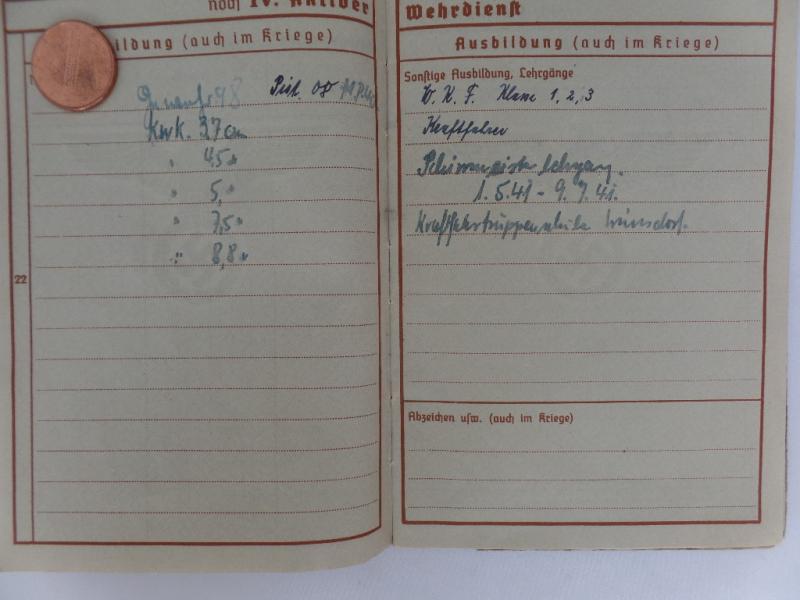 noch IV. Aktiver
bildung (auch im Kriege)
Gewehr 98 Pist. 08
Kwk. 37 cm
" 4,5 "
" 5, "
" 7,5 "
" 8,8 "
22
Wehrdienst
Ausbildung (auch im Kriege)
Sonstige Ausbildung, Lehrgänge
W. K. F. Klasse 1, 2, 3
Kraftfahrer
Schirrmeister lehrgang.
1. 5. 41 - 9. 7. 41.
Kraftfahrtruppenschule Wünsdorf.
Abzeichen usw. (auch im Kriege)